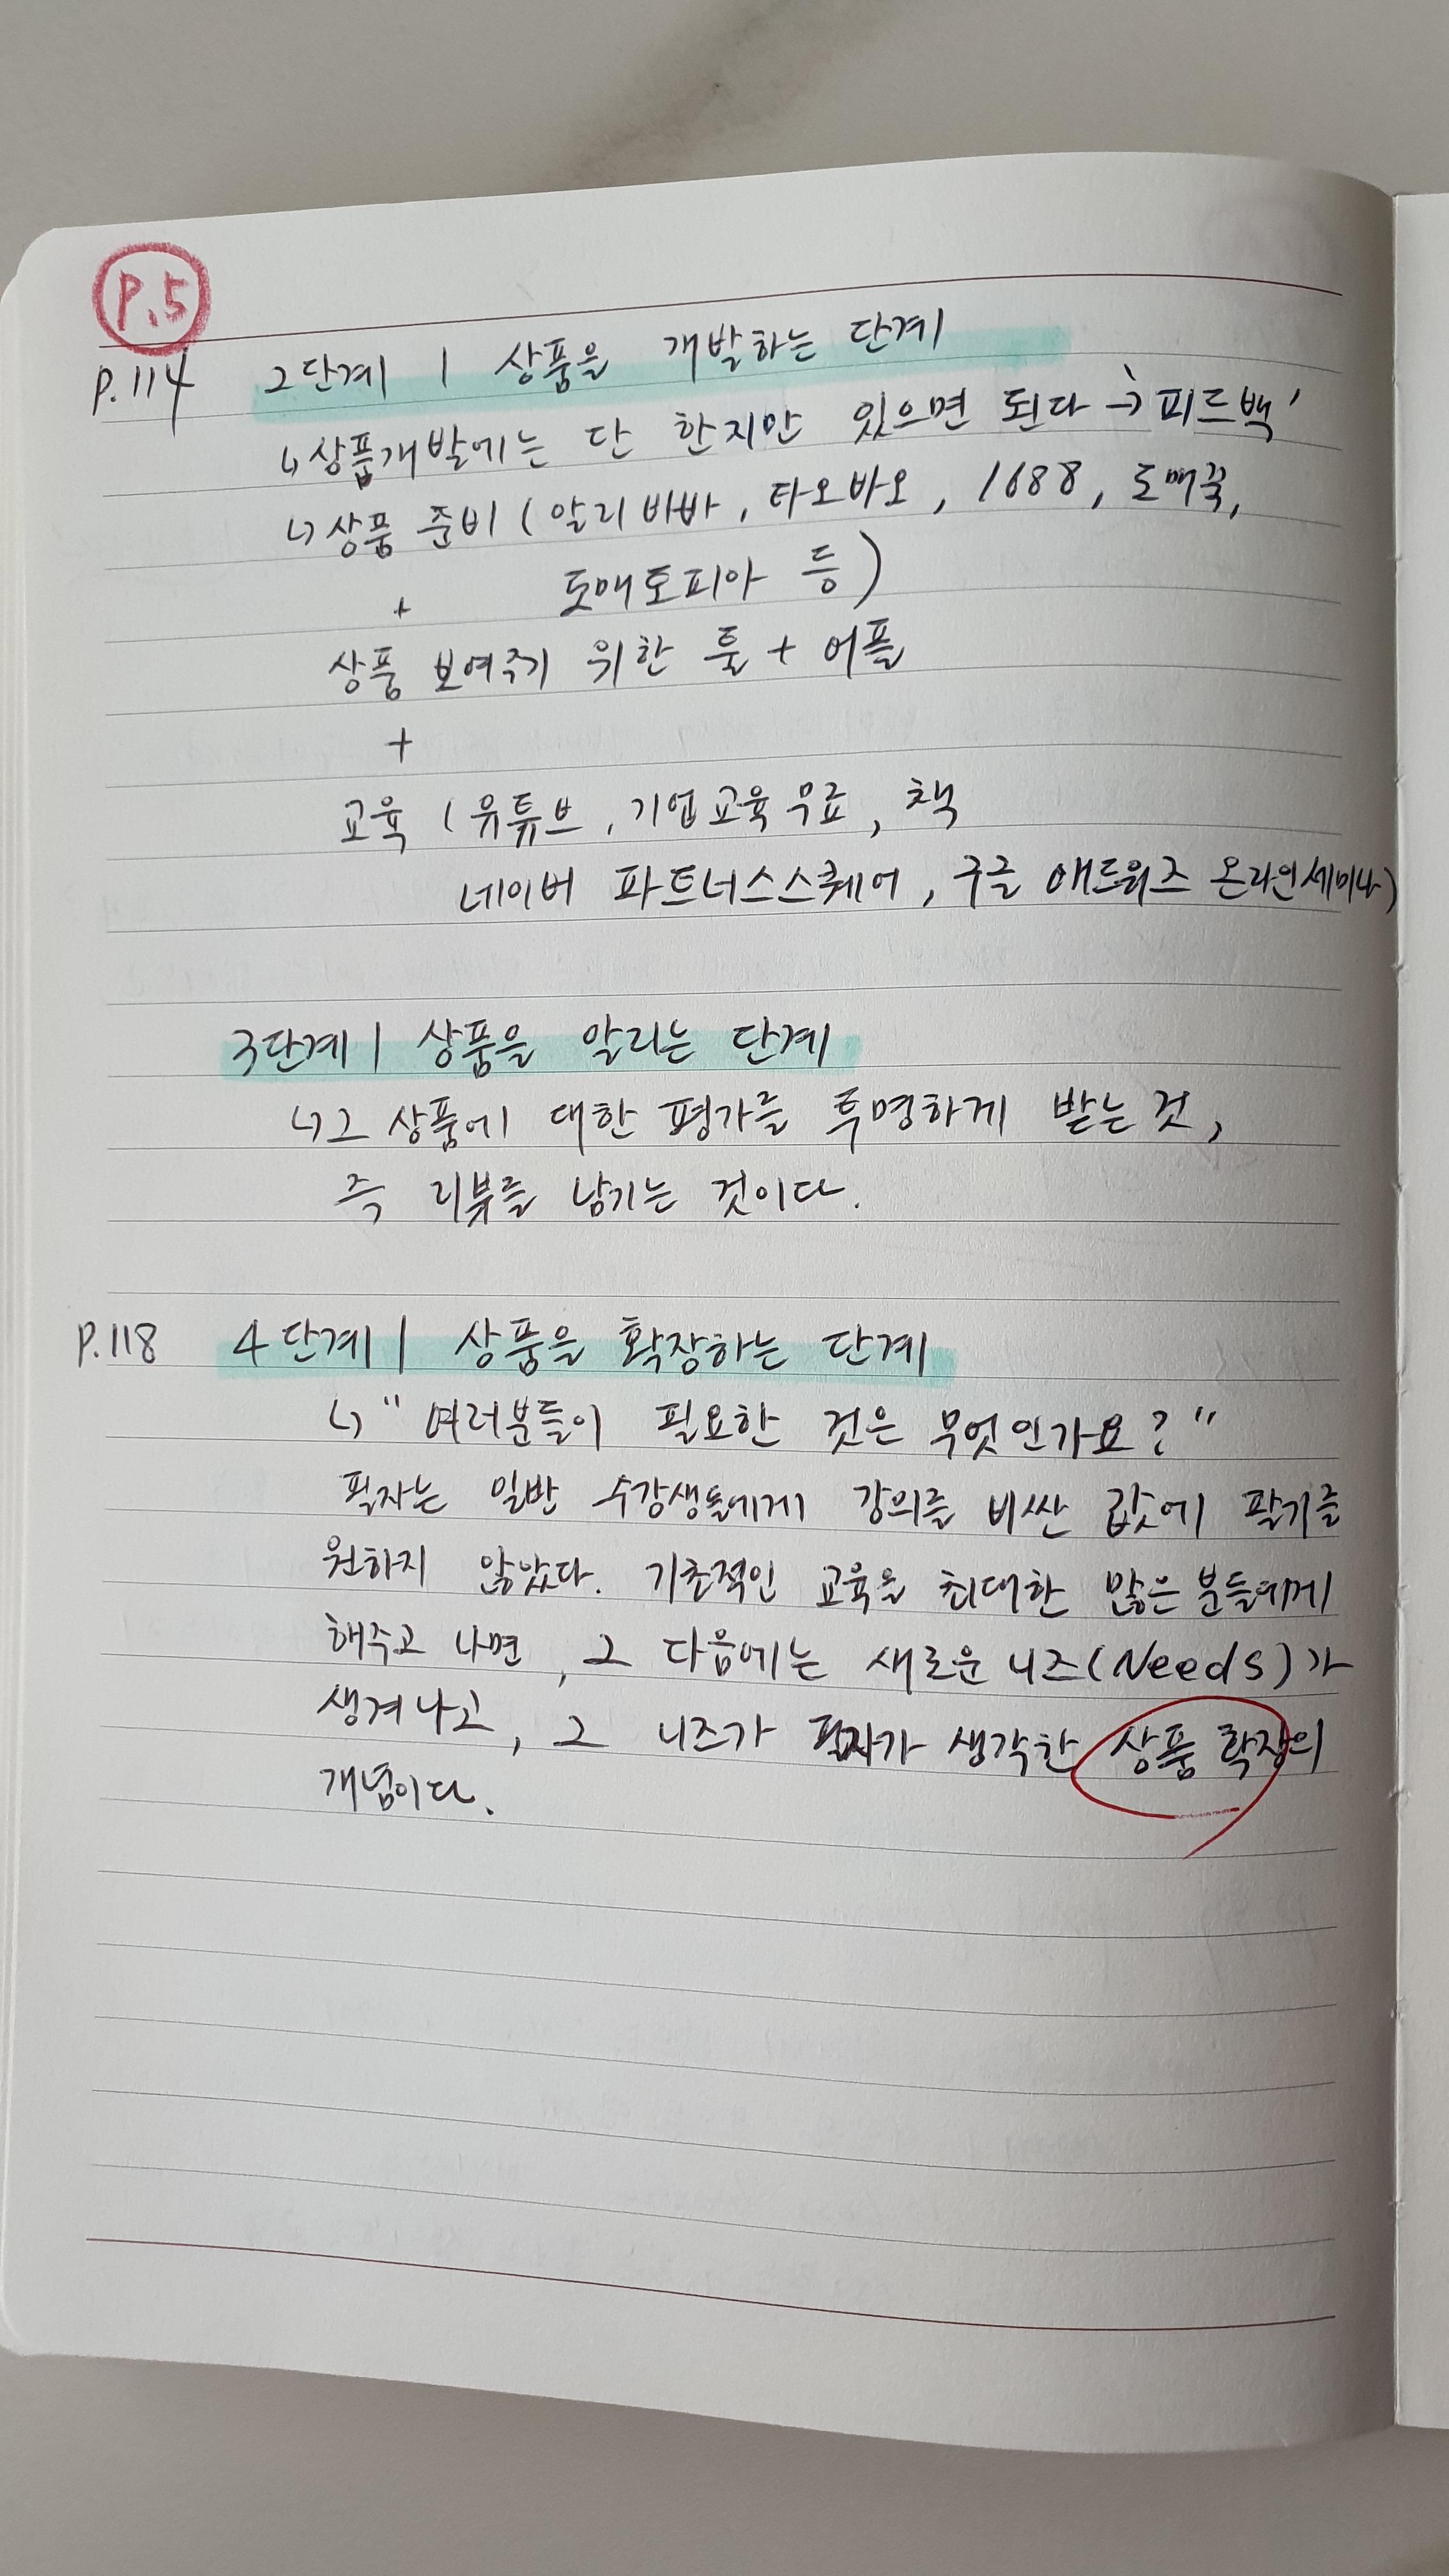 P.5
P.114 2단계 | 상품을 개발하는 단계
↳상품개발에는 단 한지만 있으면 된다 → '피드백'
↳상품 준비 (알리바바, 타오바오, 1688, 도매꾹,
+ 도매토피아 등)
상품 보여주기 위한 툴 + 어플
+
교육 (유튜브, 기업교육무료, 책
네이버 파트너스스퀘어, 구글 애드워즈 온라인세미나)
3단계 | 상품을 알리는 단계
↳그 상품에 대한 평가를 투명하게 받는 것,
즉 리뷰를 남기는 것이다.
P.118 4단계 | 상품을 확장하는 단계
↳"여러분들이 필요한 것은 무엇인가요?"
필자는 일반 수강생들에게 강의를 비싼 값에 팔기를
원하지 않았다. 기초적인 교육을 최대한 많은 분들에게
해주고 나면, 그 다음에는 새로운 니즈(Needs)가
생겨나고, 그 니즈가 필자가 생각한 상품 확장의
개념이다.